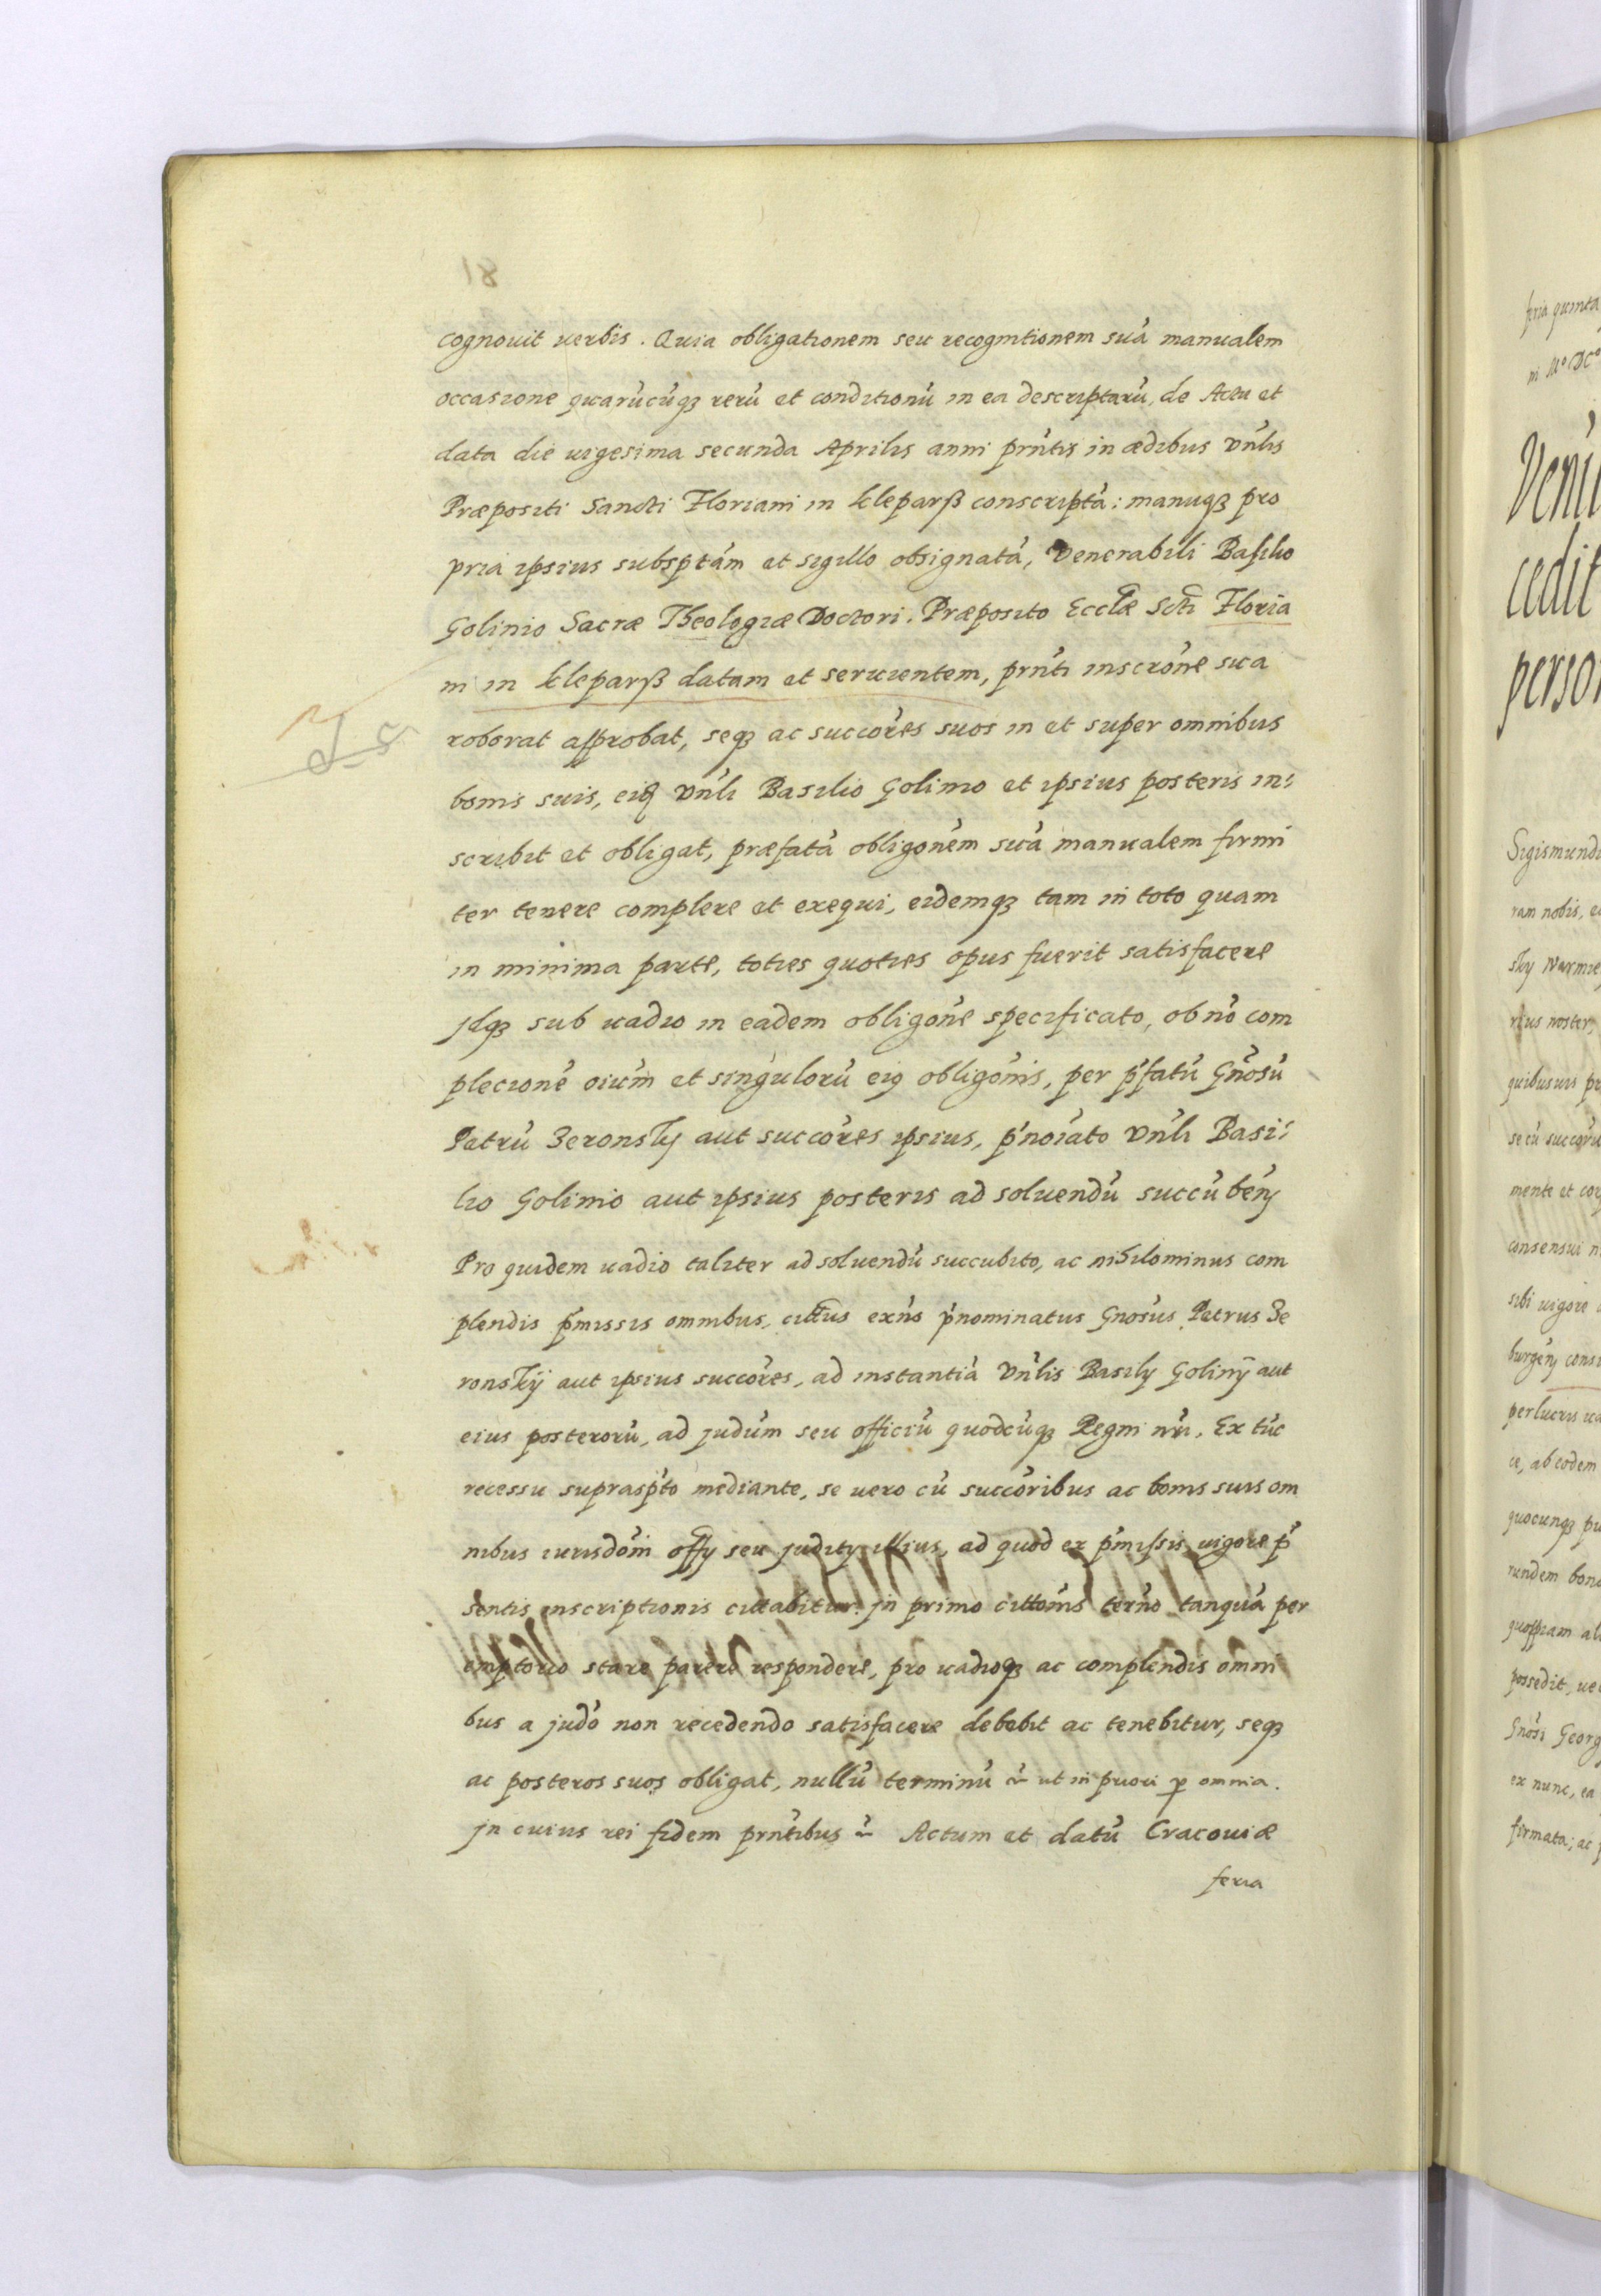 cognouit uerbis. Quia obligationem seu recognitionem suã manualem
occasione quarũcũqȝ rerũ et conditionũ in ea descriptarũ, de Actu et
data die uigesima secunda Aprilis anni prñtis in ædibus Vñlis
Præpositi Sancti Floriani in Kleparß conscriptã: manuqȝ pro
pria ipsius subsptãm et sigillo obsignatã, Venerabili Basilio
Golinio Sacræ Theologiæ Doctori. Præposito Eccłæ Scti Floria
ni in Kleparß datam et seruientem, prñti inscrõne sua
roborat approbat, seqȝ ac succõres suos in et super omnibus
bonis suis, eiq Vñli Basilio Golinio et ipsius posteris in:
scribit et obligat, præfatã obligonẽm suã manualem firmi
ter tenere complere et exequi, eidemqȝ tam in toto quam
in minima parte, toties quoties opus fuerit satisfacere
jdqȝ sub uadio in eadem obligonẽ specificato, ob nõ com
plecionẽ oiũm et singulorũ eiꝯ obligoñis, per p̃fatũ Gñosũ
Petrũ Zeronsky aut succõres ipsius, p̃noiãto Vñli Basi:
lio Golinio aut ipsius posteris ad soluendũ succũbeñ
Pro quidem uadio taliter ad soluendũ succubito, ac nihilominus com
plendis p̃missis omnibus, cittus exñs p̃nominatus Gnosũs Petrus Ze
ronskÿ aut ipsius succõres, ad instantiã Vñlis Basily Golinÿ aut
eius posterorũ, ad judũm seu officiũ quodcũqȝ Regni nri. Ex tũc
recessu supraspto mediante, se uero cũ succõribus ac bonis suis om
nibus iurisdoñi offy seu judity illius, ad quod ex p̃missis uigore p̃
sentis inscriptionis cittabitur. jn primo cittoñis terño tanquã per
emptorio stare parere respondere, pro uadioqȝ ac complendis omni
bus a judõ non recedendo satisfacere debebit ac tenebitur, seqȝ
ac posteros suos obligat, nullũ terminũ ut in priori ꝑ omnia.
jn cuius rei fidem prñtibus Actum et datũ Cracouiæ
feria
feria quinta
Sigismundu
ram nobis, e
sky Warmie
rius noster,
quibusuis pr
se cũ succorũ
mente et cor
consensui n
sibi uigore
burgeñ consi
per lucris ua
ce, ab eodem
quocunqȝ pu
rundem bono
quospiam al
possedit, ue
Gnosi Georg
ex nunc, ea
firmata; ac p
Veni
cedit
perso